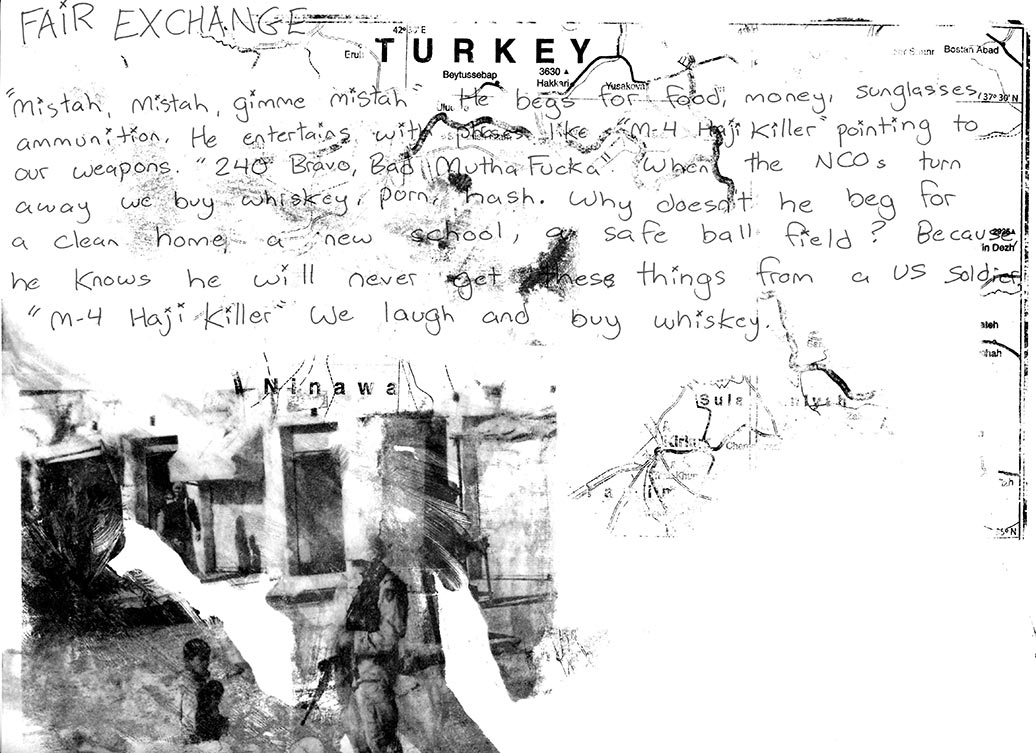 FAIR EXCHANGE
42° 30' E
TURKEY
Bostan Abad
Beytussebap
3630
Hakkari
Yuksekova
37° 30'
"Mistah, Mistah, gimme mistah" He begs for food, money, sunglasses,
ammunition. He entertains with phases like "M-4 Haji Killer" pointing to
our weapons. "240 Bravo, Bad Mutha Fucka". When the NCOs turn
away we buy whiskey, porn, hash. Why doesn't he beg for
a clean home, a new school, a safe ball field? Because
in Dezh
he knows he will never get these things from a US soldier.
"M-4 Haji Killer" We laugh and buy whiskey.
Ninawa
Sula
Kirku